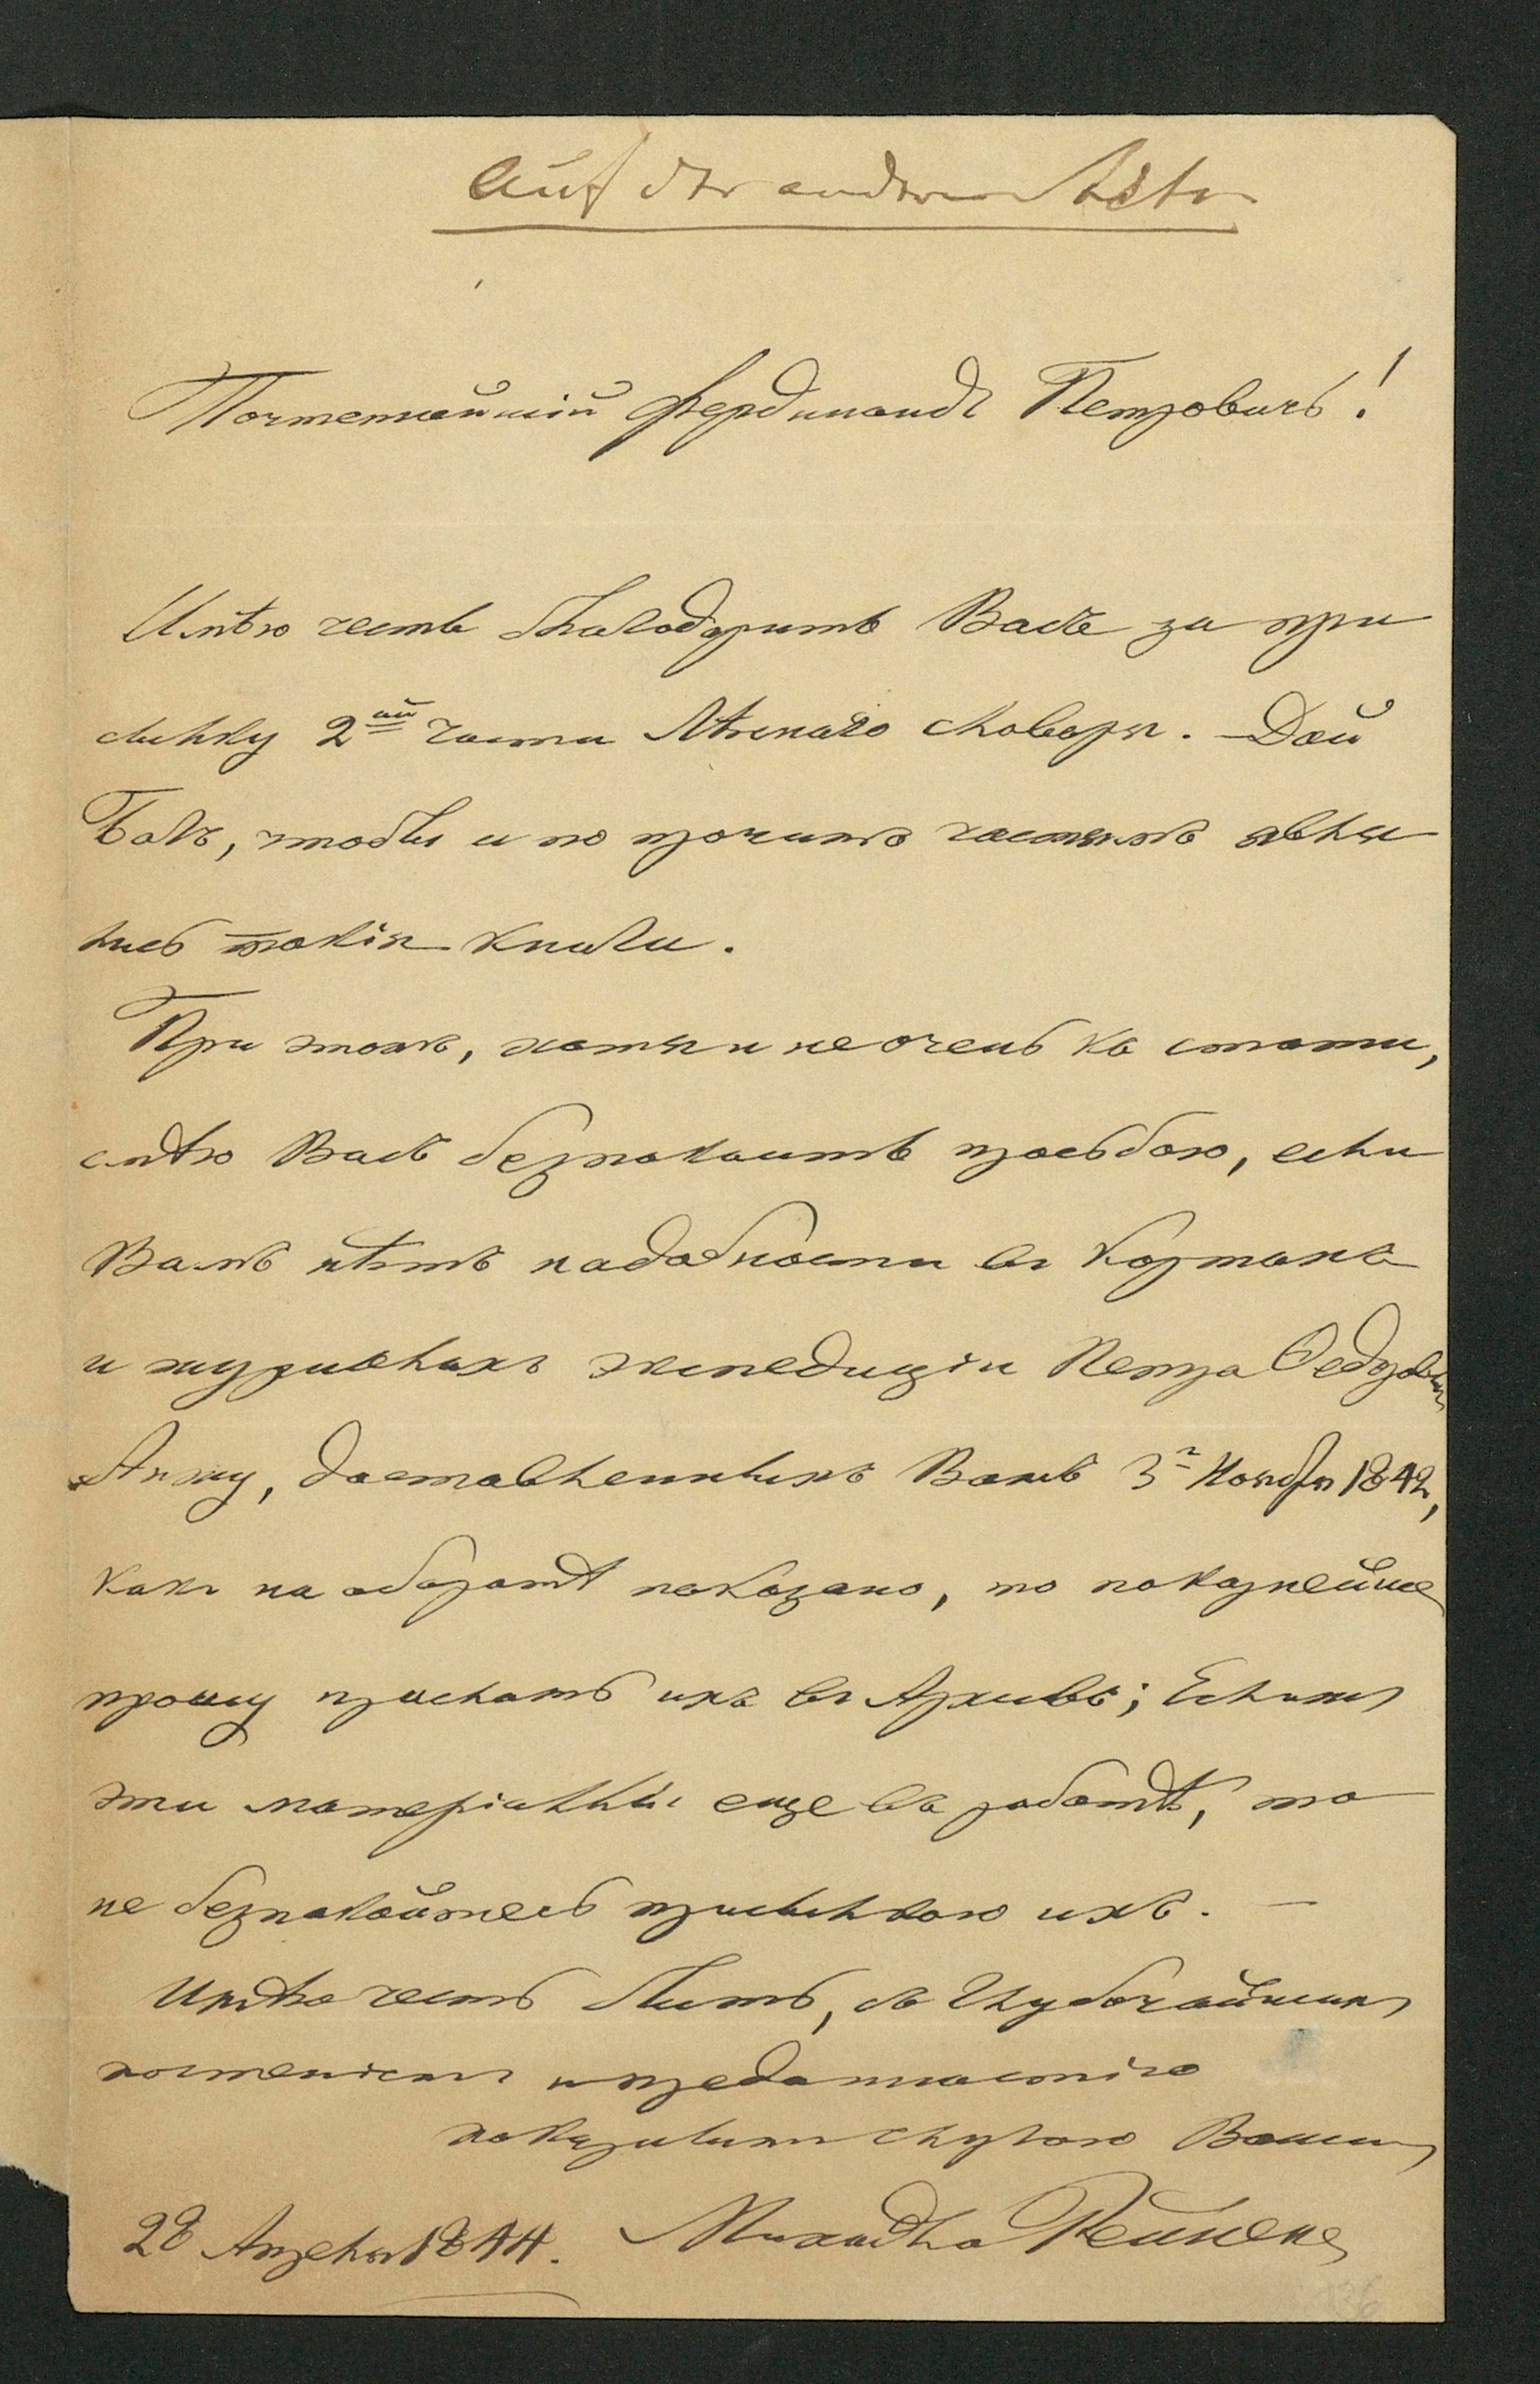 Auf der andern Seite
Почтеннѣйшій Фердинандъ Петровичъ!
Имѣю честь благодарить Васъ за при
сылку 2ой части Лѣснаго словаря. Дай
Богъ, чтобы и по прочимъ частямъ явля
лись такія книги.
При этомъ, хотя и не очень къ стати,
смѣю Васъ безпокоить прозьбою, если
Вамъ нѣтъ надобности въ картахъ
и журналахъ экспедиціи Петра Федоровича
Анжу, доставленныхъ Вамъ 3го Ноября 1842,
какъ на оборотѣ показано, то покорнейше
прошу прислать ихъ въ Архивъ; Если же
эти матеріаллы еще въ работѣ, то
не безпокойтесь присылкою ихъ. —
Имѣю честь быть, съ глубочайшимъ
почтеніемъ и преданностію
покорнымъ слугою Вашимъ
28 Апреля 1844. Михайла Рейнеке